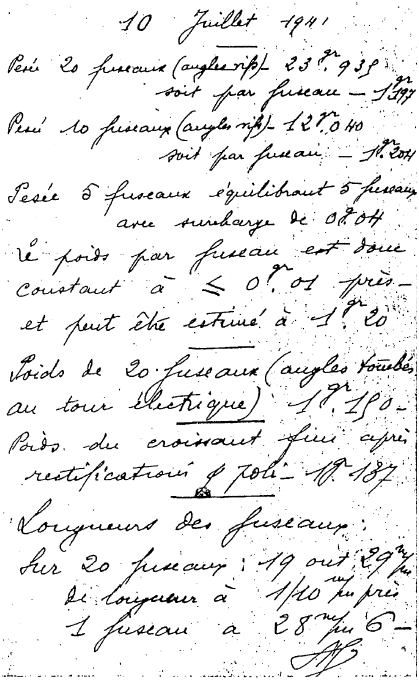 10 Juillet 1941
Pesée 20 fuseaux (angles vifs) - 23gr.935
soit par fuseau - 1gr.197
Pesée 10 fuseaux (angles vifs) - 12gr.040
soit par fuseau - 1gr.204
Pesée 5 fuseaux équilibrant 5 fuseaux
avec surcharge de 0g.04
Le poids par fuseau est donc
constant à ≤ 0gr.01 près -
et peut être estimé à 1gr.20
Poids de 20 fuseaux (angles tombés
au tour électrique) 1gr.190 -
Poids du croissant fini après
rectifications & poli - 1gr.187
Longueurs des fuseaux :
Sur 20 fuseaux : 19 ont 29m/m
de longueur à 1/10 m/m près
1 fuseau a 28m/m 6 -